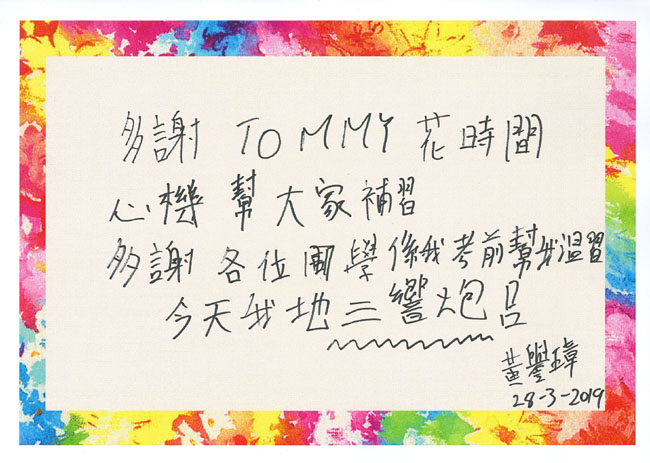 多謝 TOMMY 花時間
心機 幫 大家補習
多謝 各位同學 係我考前幫我溫習
今天我地三響炮呂
黃譽璋
28-3-2019